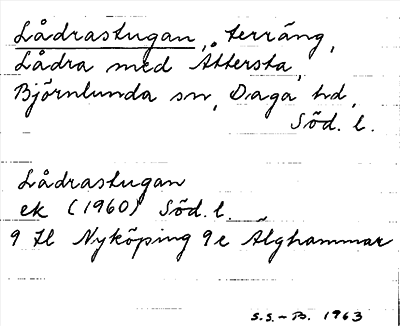 Lådrastugan, terräng,
Lådra med Åttersta,
Björnlunda sn, Daga hd,
Söd. l.
Lådrastugan
ek (1960) Söd. l.
9 H Nyköping 9e Älghammar
S.S.-B. 1963